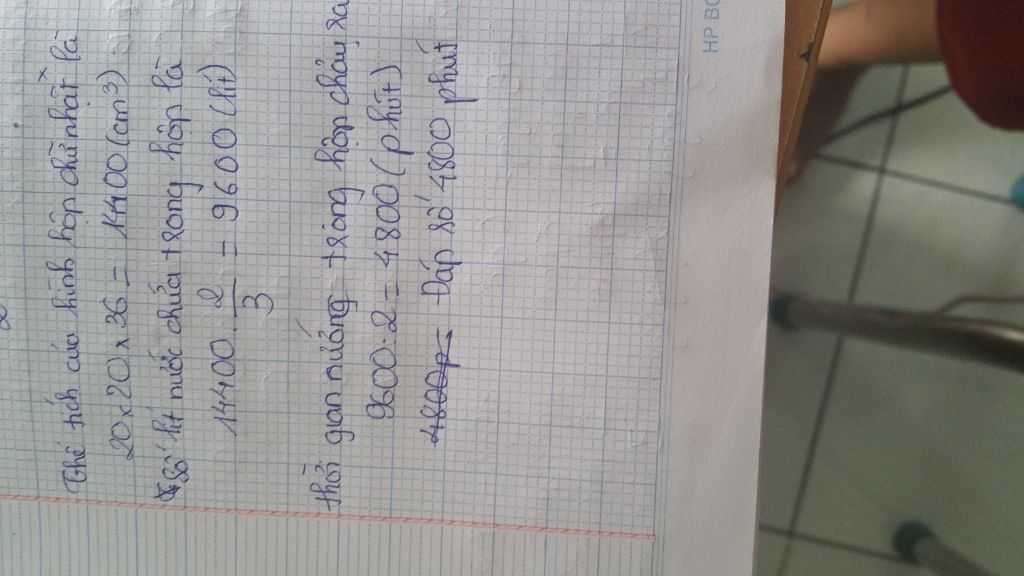 Thể tích của hình hộp chữ nhật là
20 x 20 x 36 = 14400 (cm3)
Số lít nước chứa trong hộp là
14400 . 2/3 = 9600 (lít)
thời gian nước trong hộp chảy
9600 : 2 = 4800 (phút)
Đáp số 4800 phút